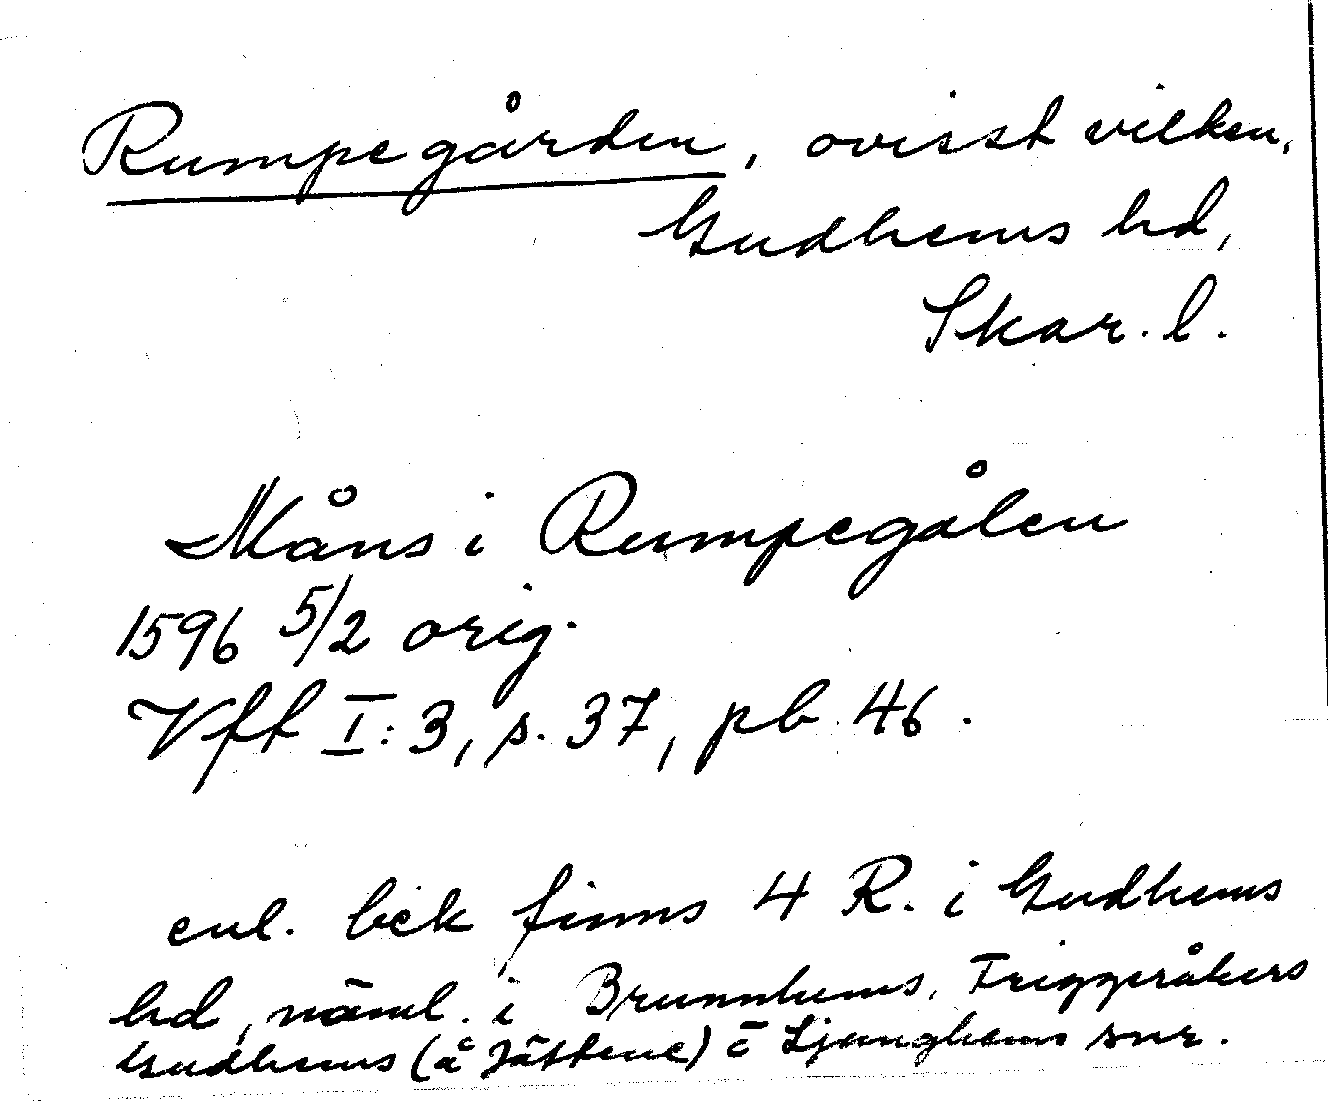 Rumpegården, ovisst vilken,
Gudhems hd,
Skar. l.
Måns i Rumpegålen
1596 5/2 orig.
Vff I:3, s. 37, pb 46.
enl. bek finns 4 R. i Gudhems
hd, näml. i Brunnhems, Friggeråkers
Gudhems (å Jättene) o Ljunghems snr.